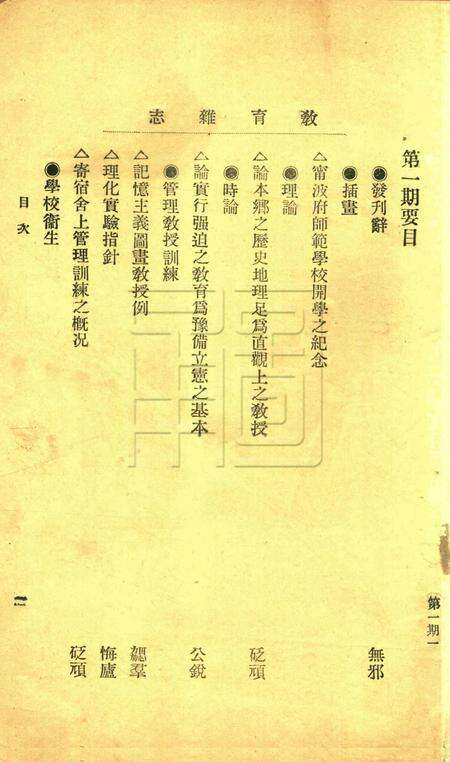 教育雜志
第一期要目
●發刊辭 無邪
●插畫
△甯波府師範學校開學之紀念
●理論
△論本鄉之歷史地理足爲直觀上之敎授 砭頑
●時論
△論實行强迫之敎育爲豫備立憲之基本 公銳
●管理敎授訓練
△記憶主義圖畫敎授例 羣
△理化實驗指針 悔廬
△寄宿舍上管理訓練之槪况 砭頑
●學校衞生
目次
一
第一期一